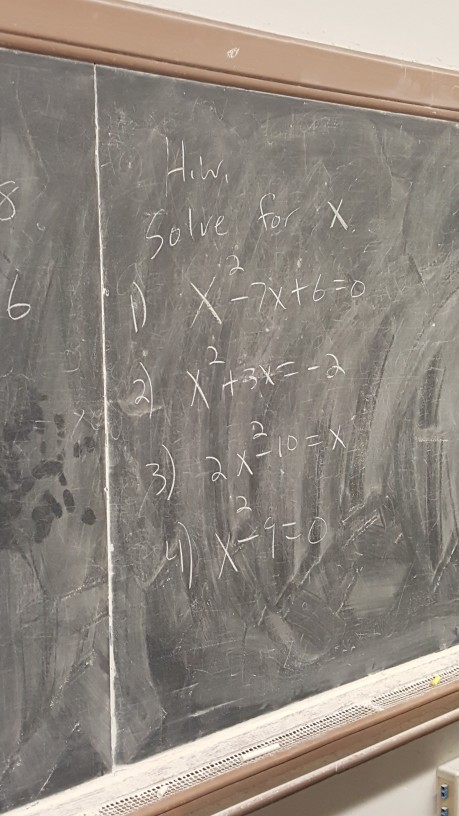 8
6
H.W.
Solve for x.
1) x²-7x+6=0
2) x²+3x=-2
3) 2x²-10=x
4) x²-9=0